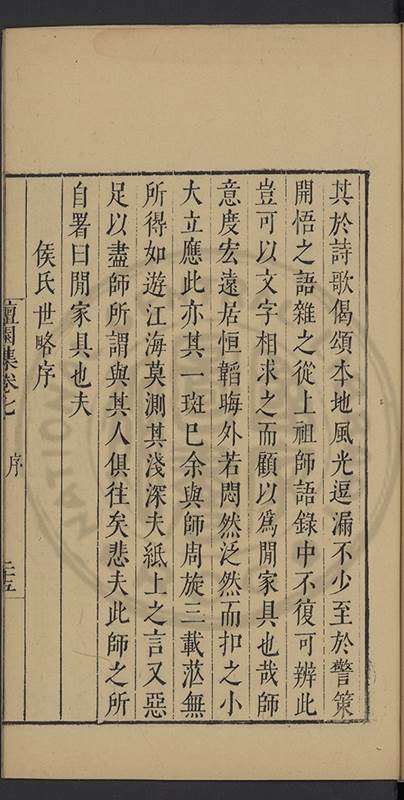 其於詩歌偈頌本地風光逗漏不少至於警策
開悟之語雜之從上祖師語錄中不復可辨此
豈可以文字相求之而顧以爲閒家具也哉師
意度宏遠居恒韜晦外若悶然泛然而扣之小
大立應此亦其一斑巳余與師周旋三載茫無
所得如遊江海莫測其淺深夫紙上之言又惡
足以盡師所謂與其人俱往矣悲夫此師之所
自署曰閒家具也夫
侯氏世略序
集卷七
序